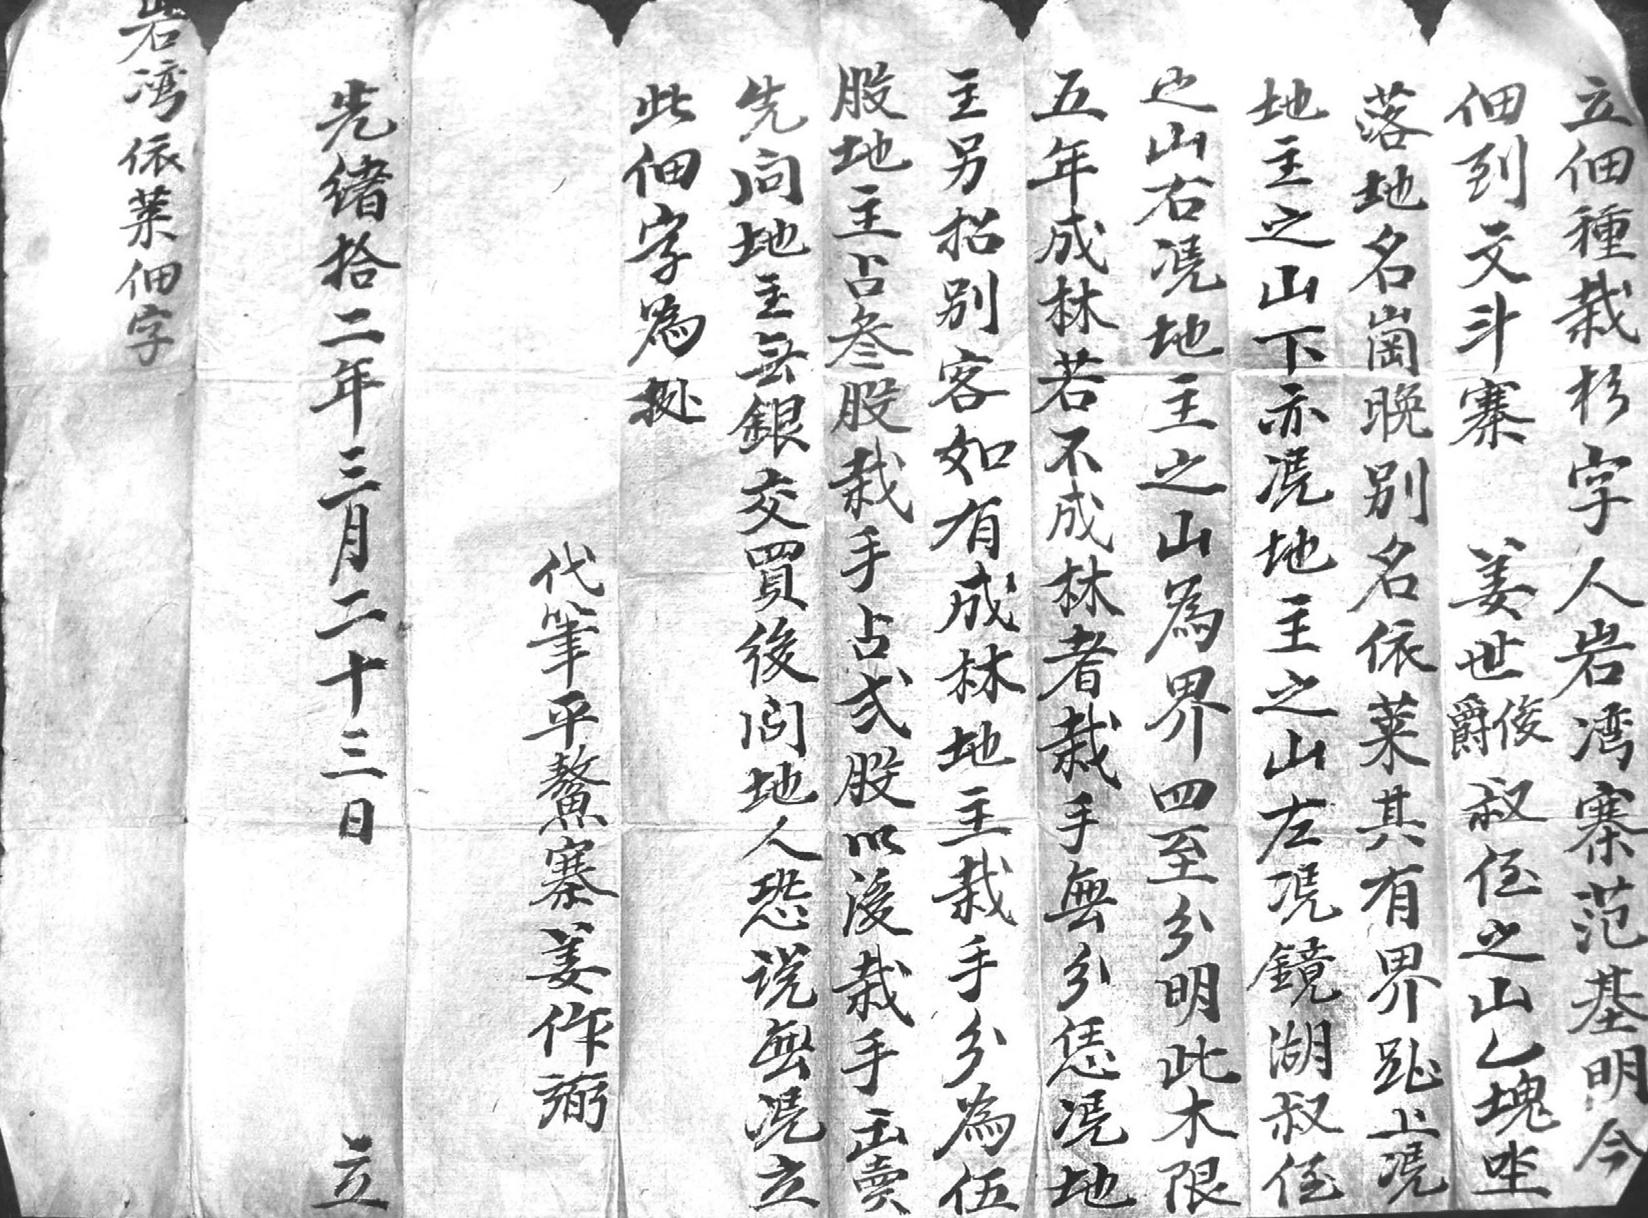 立佃種栽杉字人岩湾寨范基明今
佃到文斗寨 姜世俊爵叔侄之山乙塊坐
落地名崗晚别名依菜其有界趾上凴
地主之山下亦凴地主之山左凴鏡湖叔侄
之山右凴地主之山為界四至分明此木限
五年成林若不成林者栽手無分恁凴地
主另招别客如有成林地主栽手分為伍
股地主占叁股栽手占弍股以後栽手出賣
先问地主無銀交買後问地人恐说無凴立
此佃字為㨿
代筆平鰲寨姜作弼
光绪拾二年三月二十三日 立
岩湾依菜佃字